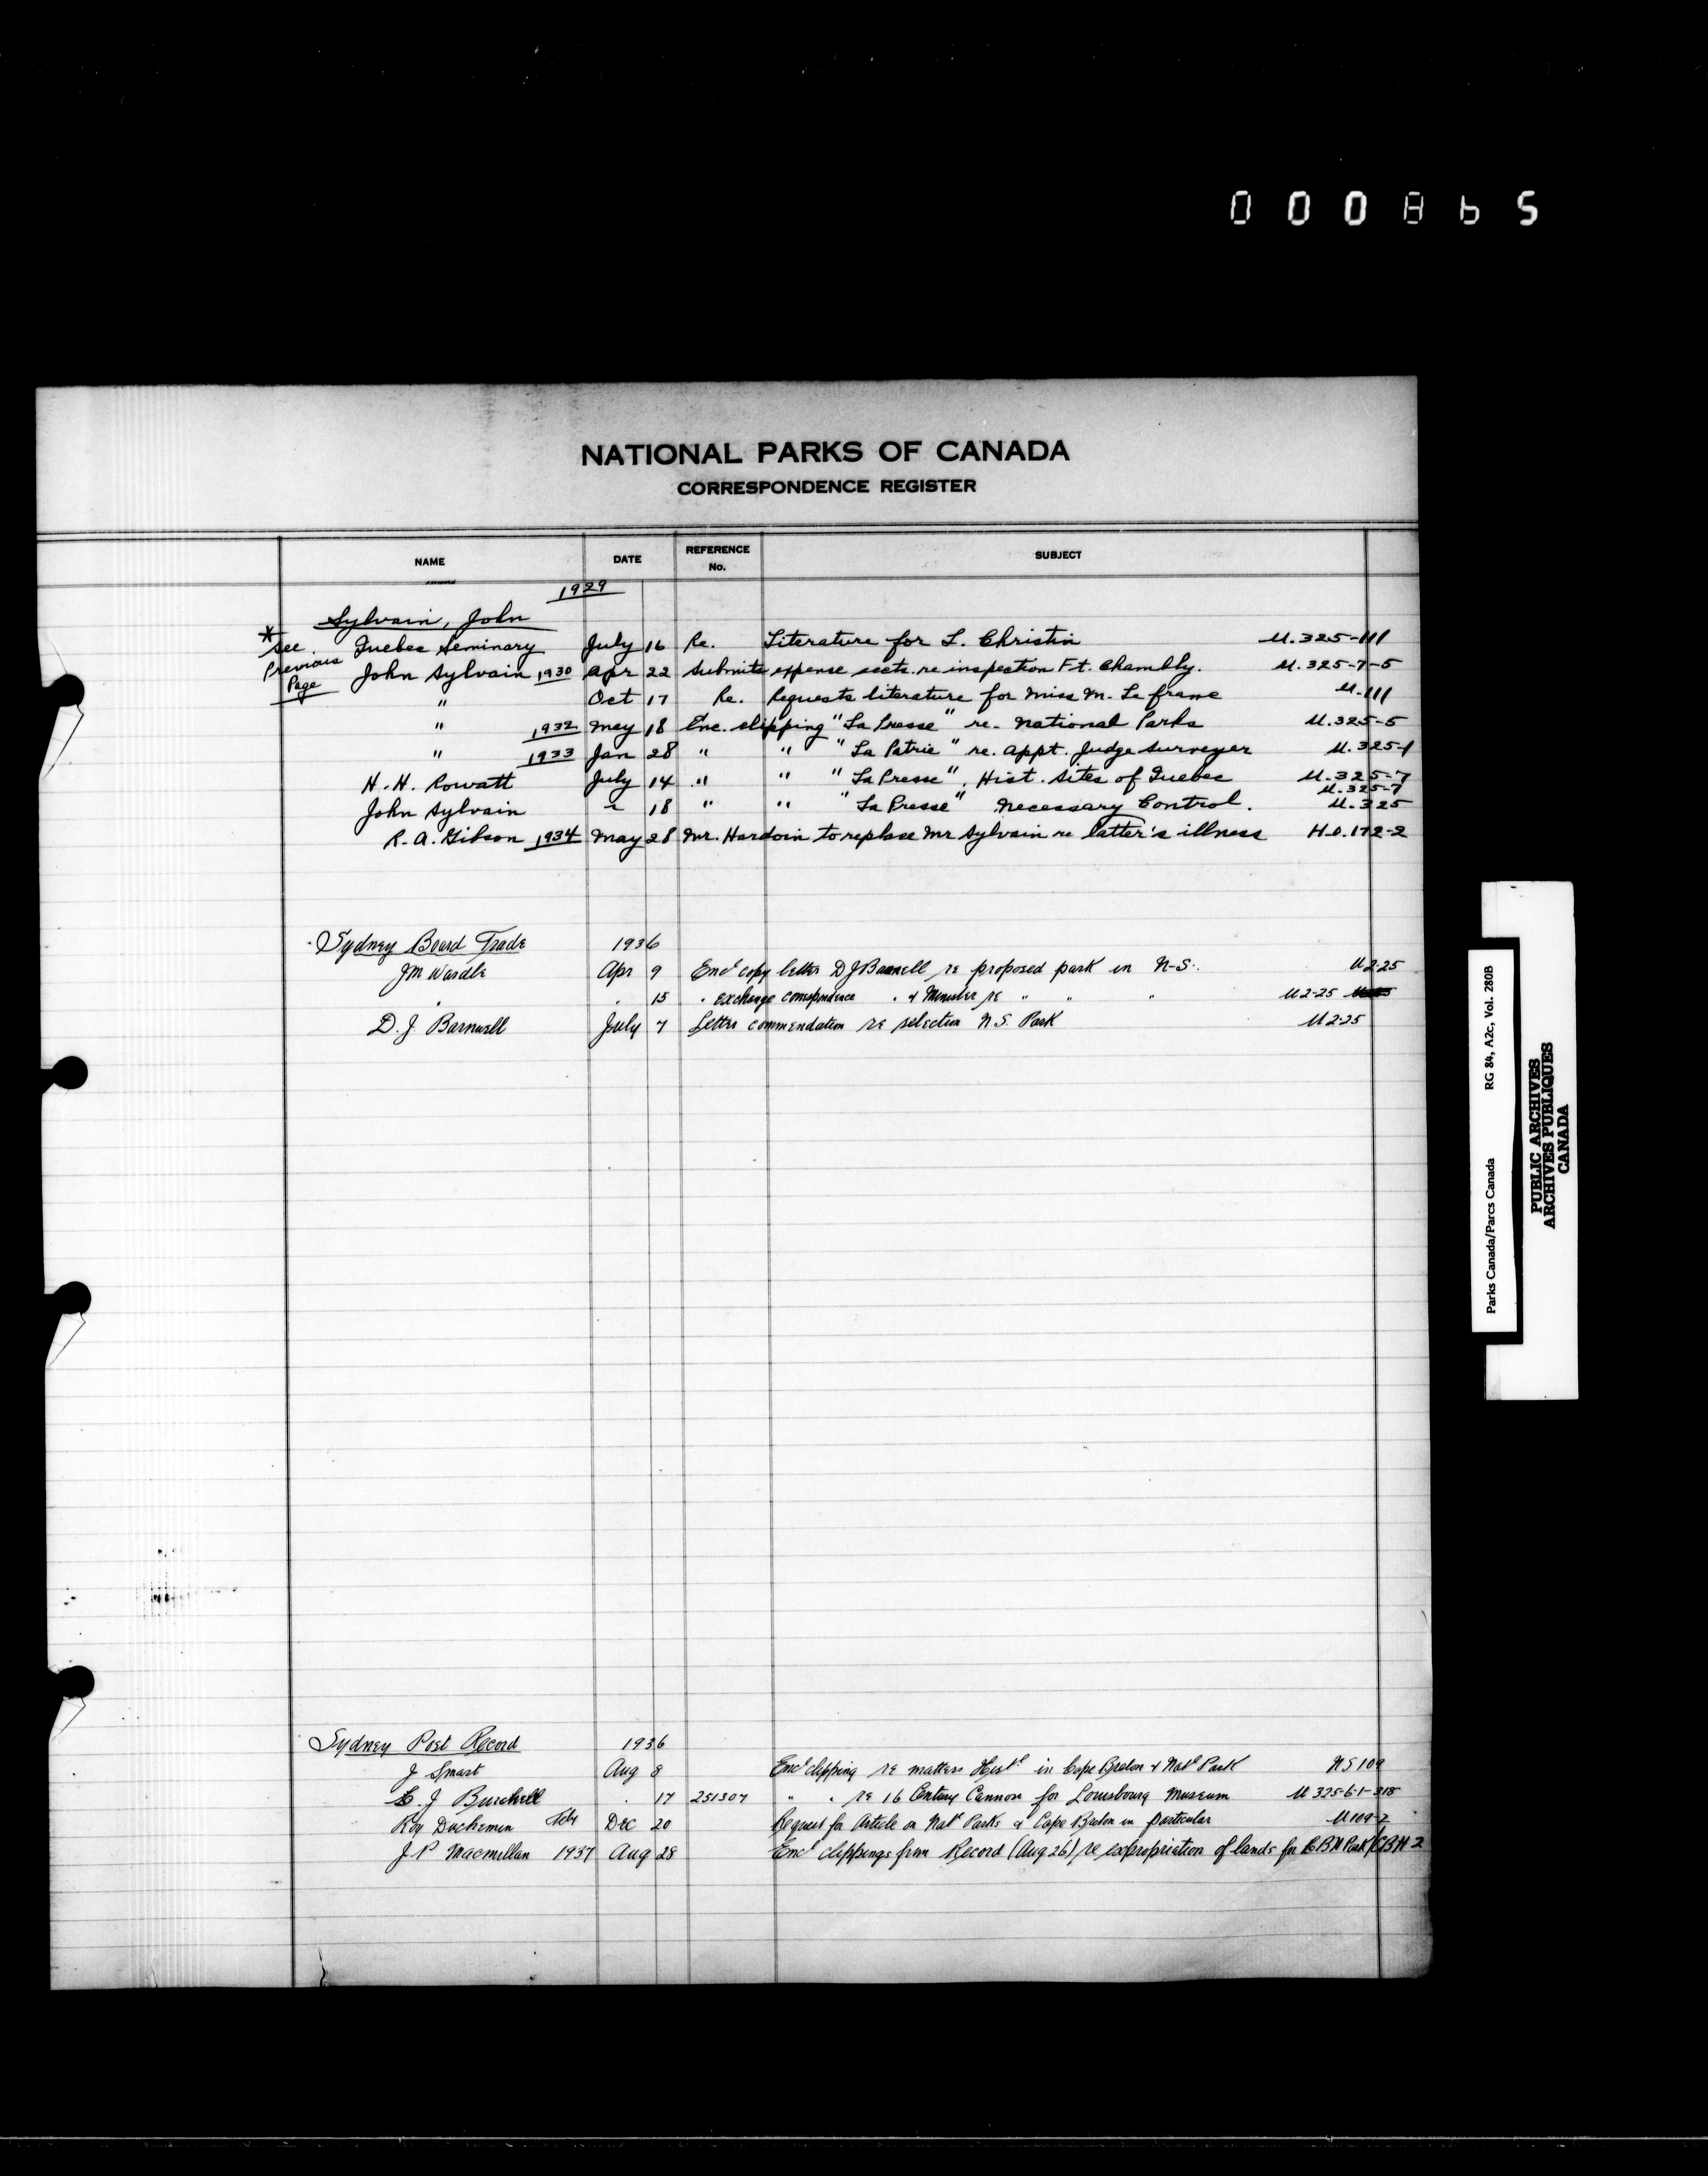 NATIONAL PARKS OF CANADA
CORRESPONDENCE REGISTER
NAME DATE REFERENCE No. SUBJECT
1929
Sylvain, John
* see Previous Page
Quebec Seminary July 16 Re. Literature for L. Christin U.325-111
John Sylvain 1930 Apr 22 Submits expense accts. re inspection Ft. Chambly. U.325-7-5
" Oct 17 Re. Requests literature for Miss M. U.111
" 1932 May 18 Enc. clipping "La Presse" re. National Parks U.325-5
" 1933 Jan 28 " " "La Patrie" re. Appt. Judge Surveyer U.325-1
H. H. Rowatt July 14 " " "La Presse", Hist. Sites of Quebec U.325-7
U.325-7
John Sylvain " 18 " " "La Presse" Necessary Control. U.325
R. A. Gibson 1934 May 28 Mr. Hardoin to replace Mr Sylvain re latter's illness H.O.172-2
Sydney Board Trade 1936
JM Wardle Apr 9 Encl copy letter D J Barnwell re proposed park in N-S. U2-25
" " 15 " exchange correspondence " & Minister re " " " U2-25
D. J. Barnwell July 7 Letter commendation re selection N.S. Park U2-25
Sydney Post Record 1936
J Smart Aug 8 Encl clipping re matters Histl in Cape Breton & Natl Park NS109
C. J Burchell " 17 251307 " " re 16 Century Cannon for Louisbourg Museum U325-6-1-318
Roy Duchemin Dec 20 Request for Article on Natl Parks & Cape Breton in particular U109-2
J P Macmillan 1937 Aug 28 Encl clippings from Record (Aug 26) re expropriation of lands for CBH Park CBH 2
Parks Canada/Parcs Canada RG 84, A2c, Vol. 280B
PUBLIC ARCHIVES
ARCHIVES PUBLIQUES
CANADA